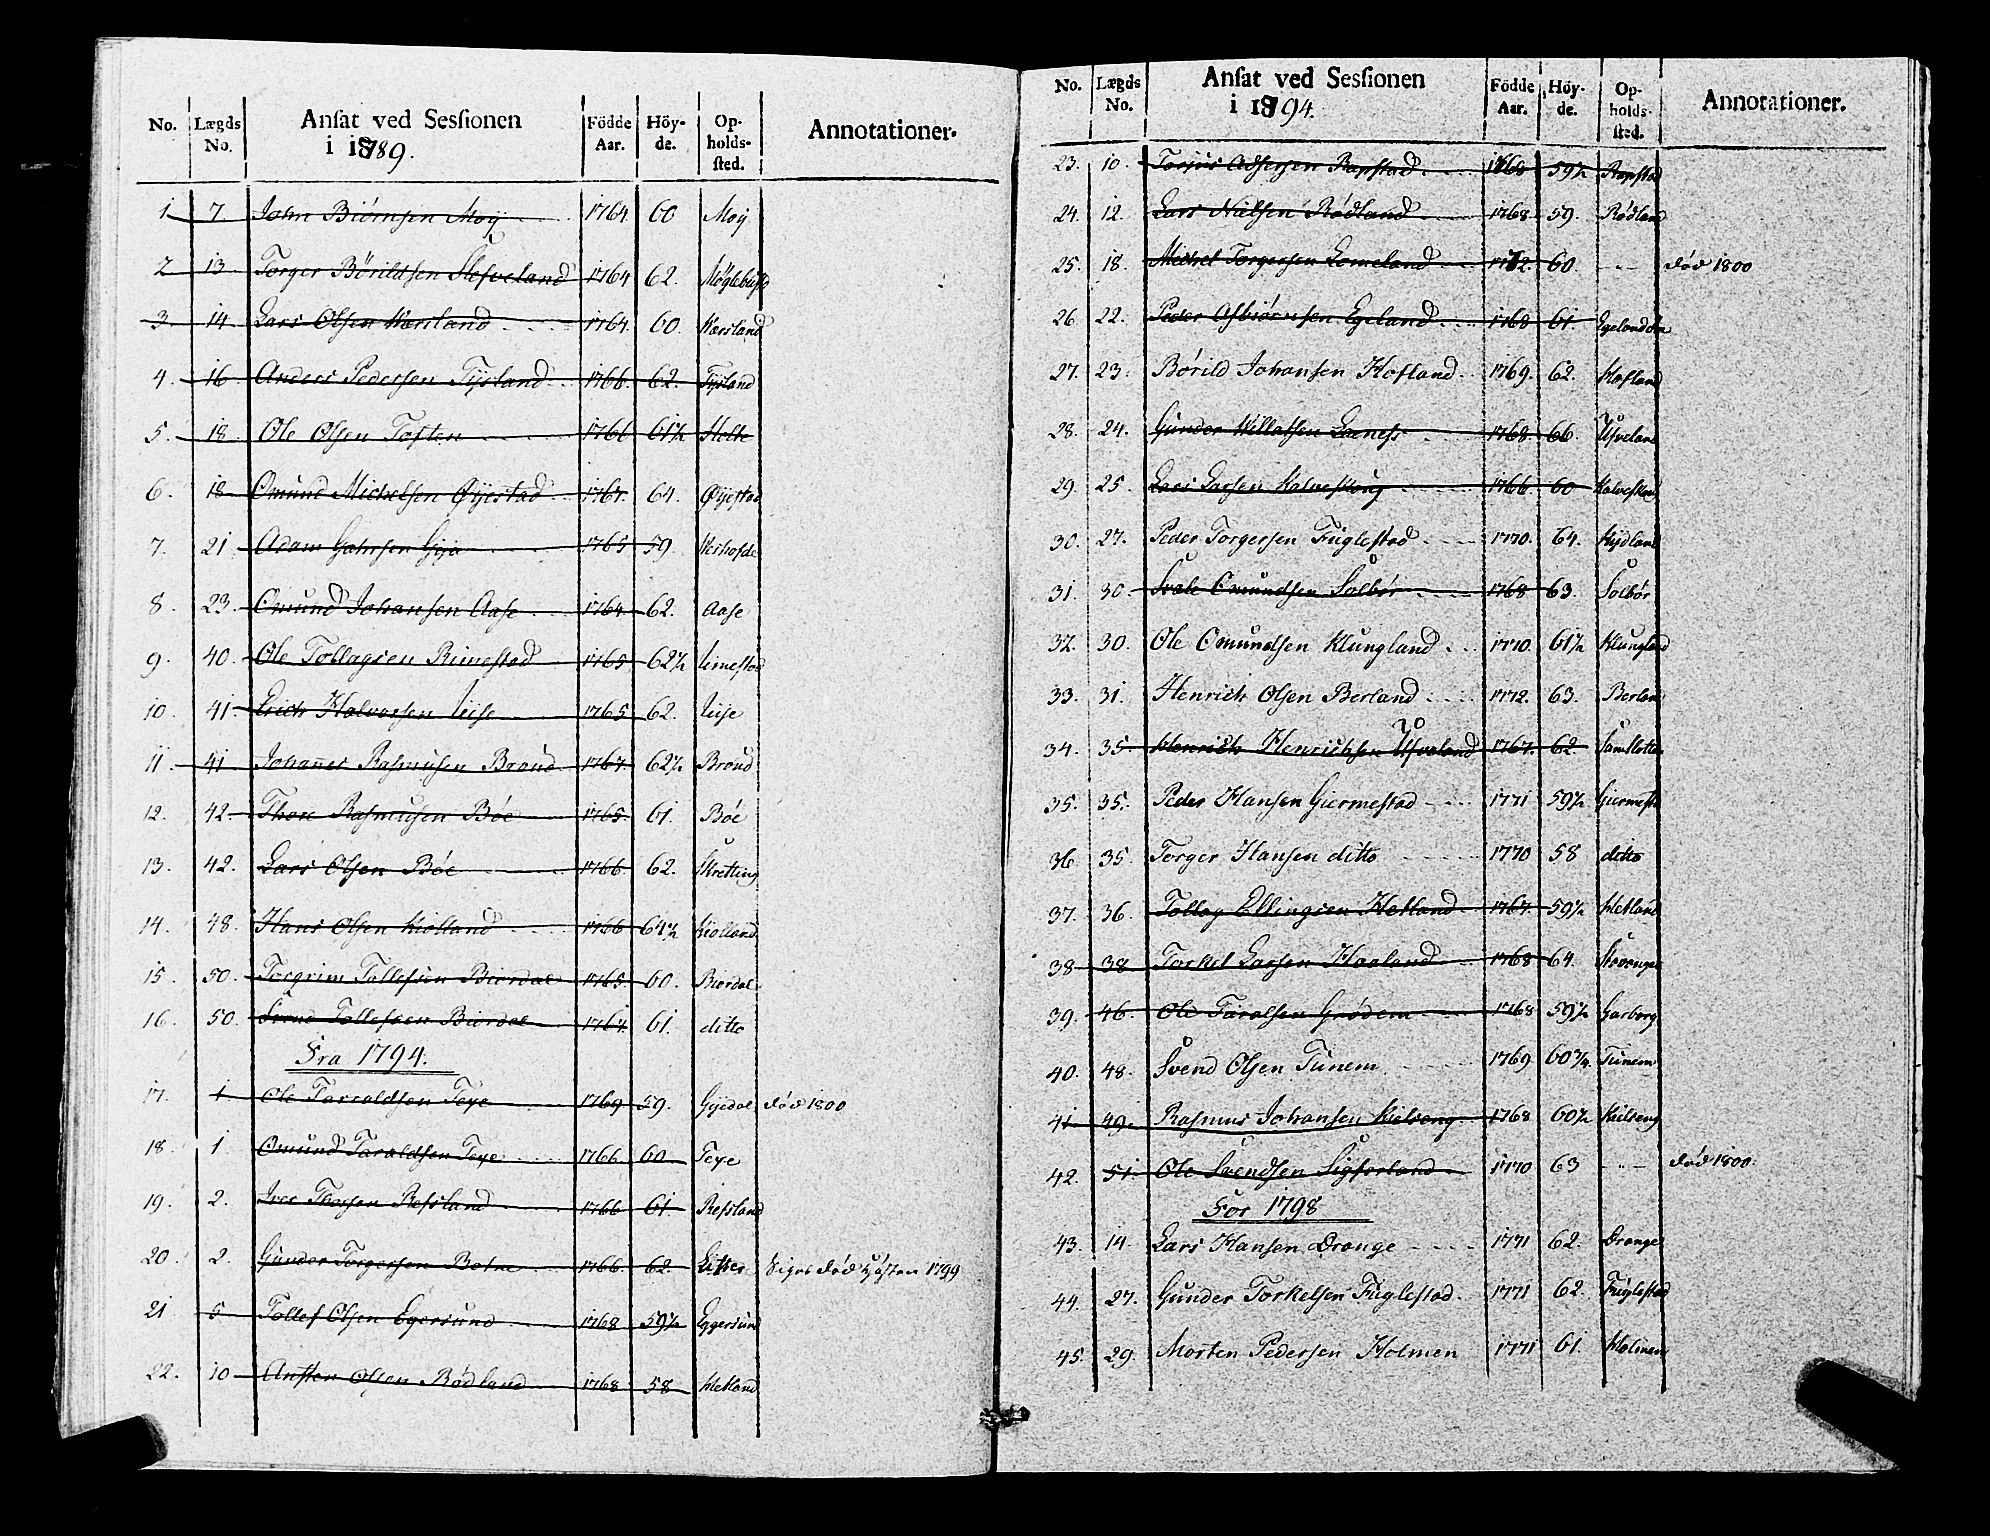 No. Lægds No. Ansat ved Sessionen i 1789. Födde Aar. Höy-de. Op-holds-sted. Annotationer.
1 7 John Biörnsen Moij 1764 60 Moij
2 13 Torger Börildsen 1764 62.
3. 14 Lars Olsen Kærsland 1764. 60. Kærsland
4. 16 Anders Pedersen Tÿsland 1766. 62. Tÿsland
5. 18 Ole Olsen Toften 1766 61½ Helle
6. 18 Omund Michelsen Øÿestad 1767. 64. Øÿestad
7. 21 Adam Gija 1765 59.
8. 23. Omund Johansen Aase 1764. 62. Aase
9. 40. Ole Tollagsen Rimestad 1765 62½
10. 41. Erich Halvorsen 1765 62.
11. 41 Johannes Rasmusen Broud 1767. 62½ Broud
12. 42 Thore Rasmusen Böe 1765. 61. Böe
13. 42. Lars Olsen Böe 1766. 62. Skretting
14. 48. Hans Olsen Kiölland 1766 64½ Kiölland
15 50. Torgrim Tollefsen Bierdal 1765 60. Bierdal
16. 50. Svend Tollefsen Bierdal 1767 61. ditto
Fra 1794.
17. 1 Ole Taraldsen Teÿe 1769 59. Gÿedal död 1800
18. 1 Omund Taraldsen Teÿe 1766. 60. Teÿe
19. 2. Iver Thorsen Refsland 1766 61. Refsland
20. 2. Gunder Torgersen Botne 1766. 62. död Høsten 1799
21 5 Tollef Olsen Egersund 1768 59½ Eggersund
22. 10 Ansten Olsen Rödland 1768. 58 Hetland
No. Lægds No. Ansat ved Sessionen i 1794. Födde Aar. Höy-de. Op-holds-sted. Annotationer.
23. 10. Torjuis Rapstad 1768 59½ Rapstad
24. 12. Lars Nielsen Rødland 1768 59. Rødland
25. 18. Michel Torgersen Lomeland 1772. 60. -"- död 1800
26. 22. Peder Asbiörnsen Egeland 1768 61. Egeland
27. 23. Börild Johansen Hofland 1769. 62. Hofland
28. 24. Gunder Willassen 1768. 66.
29. 25. Lars Larsen Kalveskoug 1766 60 Kalveskoug
30. 27. Peder Torgersen Fuglestad 1770. 64. Hÿdland
31. 30. Omundsen Solbör 1768 63. Solbör
32. 30. Ole Omundsen Klungland 1770. 61½ Klungland
33. 31. Henrich Olsen Berland 1772. 63. Berland
34. 35. Henrich Henrichsen Ufveland 1767. 62
35. 35. Peder Hansen Giermestad 1771 59½ Giermesta
36 35. Torger Hansen ditto 1770 58 ditto
37. 36. Tollag Ellingsen Hetland 1767. 59½ Hetland
38 38 Torkel Larsen Haaland 1768 64. Stavanger
39. 46. Ole Grödem 1768 59½ Garborg
40. 48. Svend Olsen Tunem 1769 60¾ Tunem
41. 49. Rasmus Johansen Kielseng 1768 60½ Kielseng
42. 51. Ole Svendsen 1770 63 -"- död 1800.
For 1798
43. 14. Lars Hansen Drange 1771 62. Drange
44. 27. Gunder Torkelsen Fuglestad. 1771 62. Fuglestad
45. 29. Morten Pedersen Holmen 1771 61. Holmen